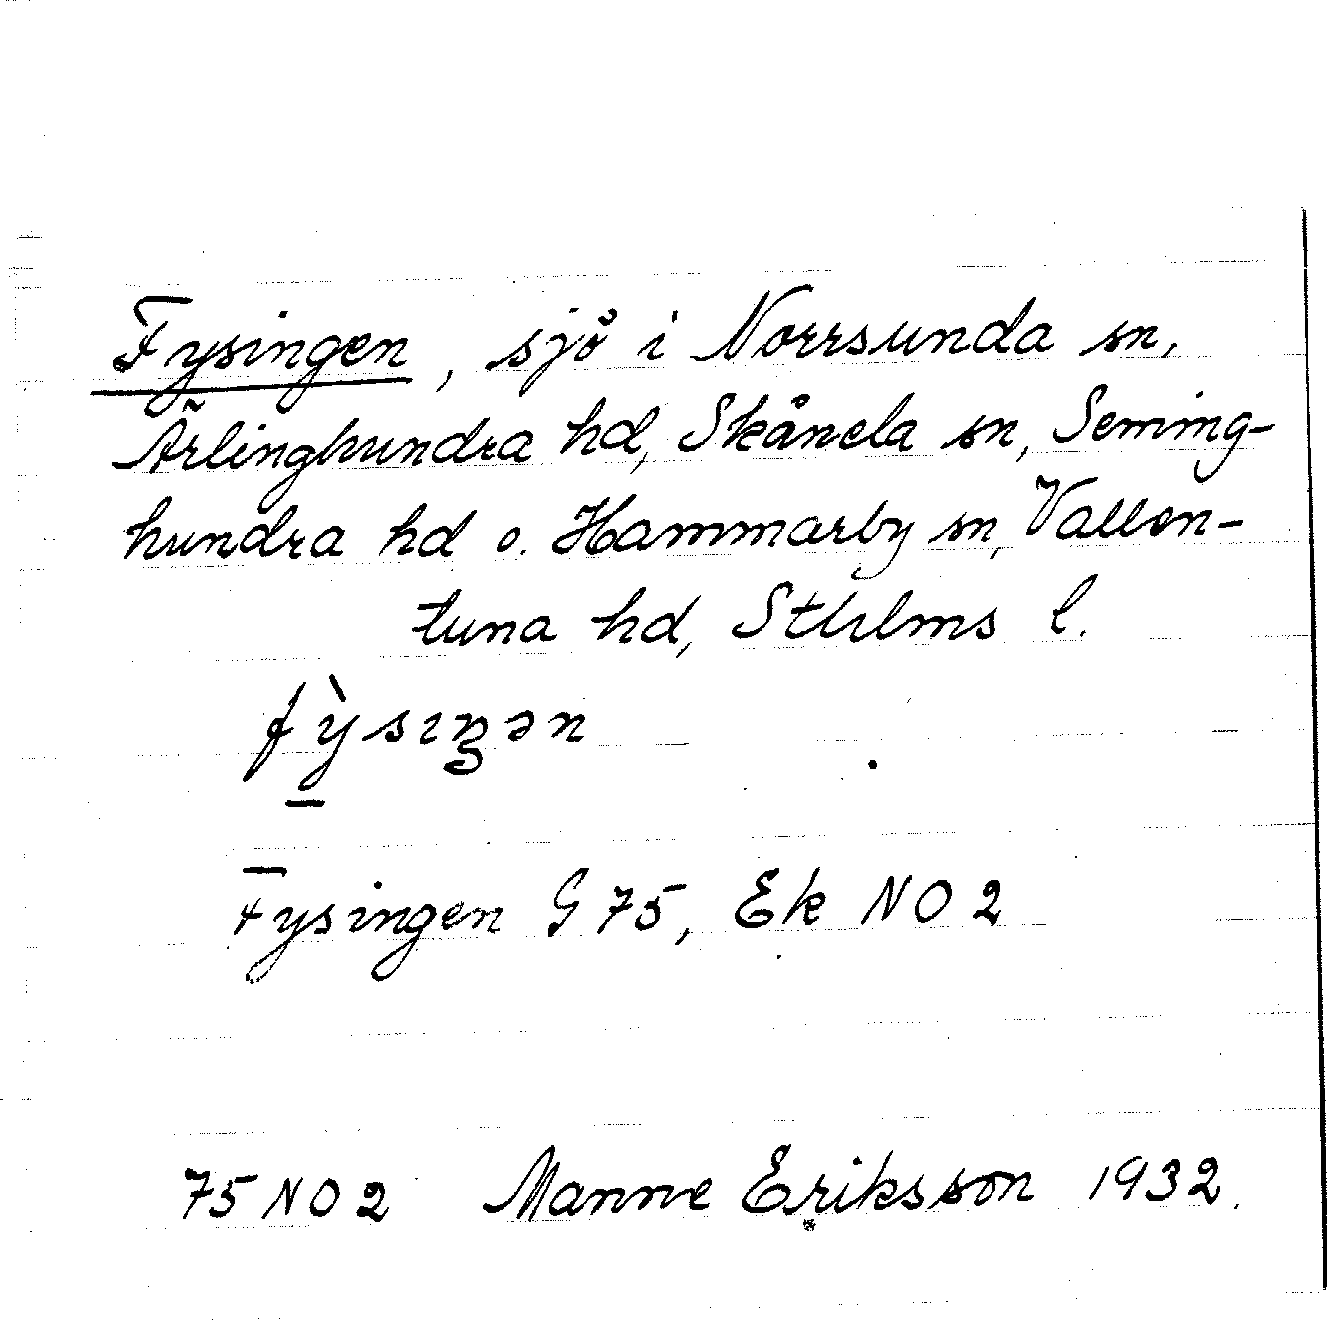 Fysingen, sjö i Norrsunda sn,
Ärlinghundra hd, Skånela sn, Seming-
hundra hd o. Hammarby sn, Vallen-
tuna hd, Sthlms l.
fỳ̱sıŋən
Fysingen G 75, Ek NO 2
75 NO 2 Manne Eriksson 1932.